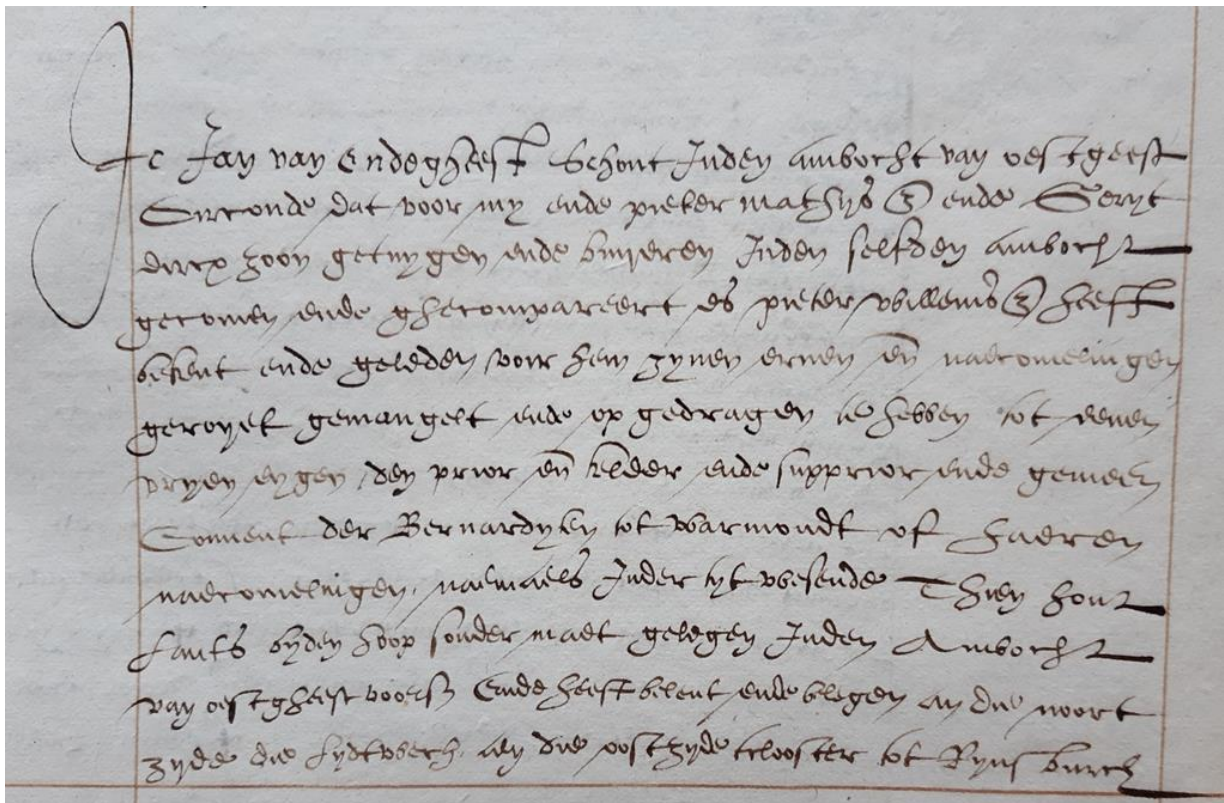 Ic Jan van Endegheest Schout Inden ambocht van oestgeest
Oirconde dat voor my ende pieter mathijs z ende Geryt
dircx zoon getuygen ende bueren Inden selfden ambocht
gecomen ende ghecompareert es pieter willems z heeft
bekent ende geleden voir hem zynen erven en nacomelingen
geroyet gemangelt ende op gedragen te hebben tot eenen
vryen eygen den prior en kelder ende supprior ende gemeen
Convent der Bernardyten tot warmondt of haeren
nacomelingen naemaels Inder tyt wesende Thien hont
Lants byden hoop sonder maet gelegen Inden Ambocht
van oestgheest voirsz Ende heeft belent ende belegen an die noort
zyde die Lydtwech an die oostzyde tclooster tot Rynsburch